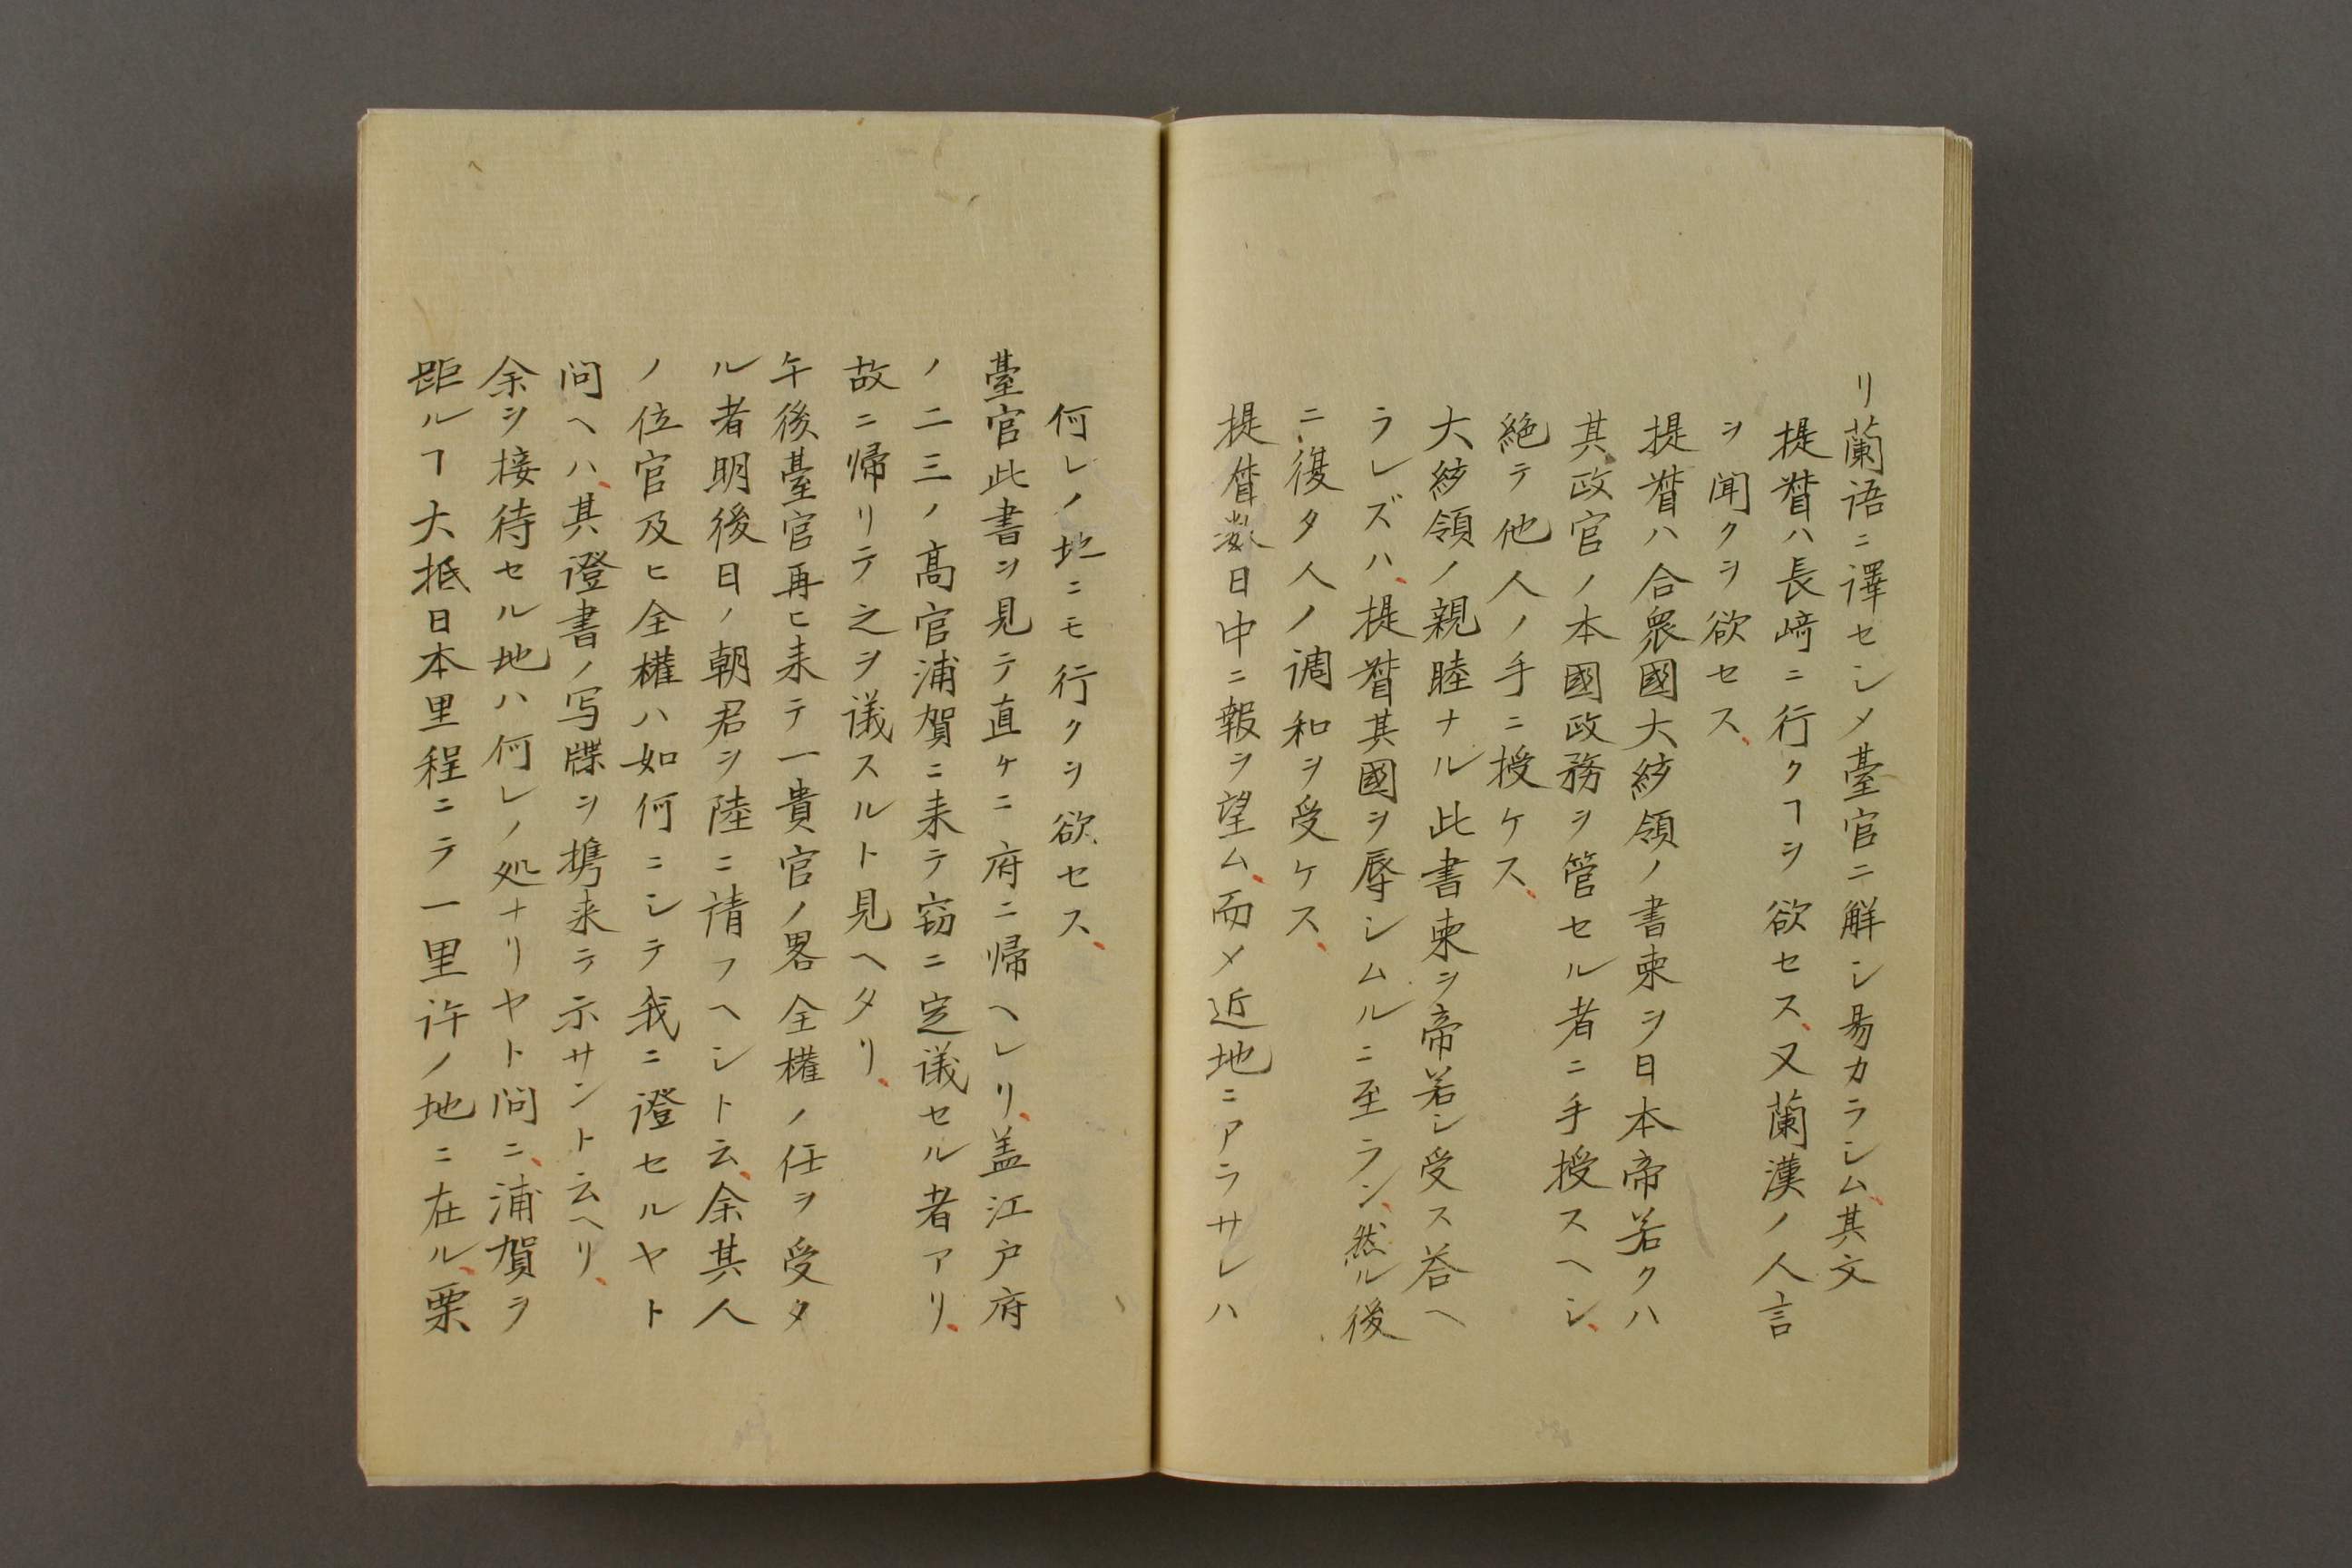 リ蘭语ニ譯センメ臺官ニ解シ易カラシム、其文
提督ハ長﨑ニ行クヿヲ欲セス、又蘭漢ノ人言
ヲ聞クヲ欲セス、
提督ハ合衆國大統領ノ書柬ヲ日本帝若クハ
其政官ノ本國政務ヲ管セル者ニ手授スヘシ、
絶テ他人ノ手ニ授ケス、
大統領ノ親睦ナル此書柬ヲ帝若シ受ス荅ヘ
ラレズハ、提督其國ヲ辱シムルニ至ラン、然ル後
ニ復タ人ノ调和ヲ受ケス、
提督数日中ニ報ヲ望ム、而メ近地ニアラサレハ
何レノ地ニモ行クヲ欲セス、
臺官此書ヲ見テ直ケニ府ニ帰ヘレリ、盖江戸府
ノ二三ノ髙官浦賀ニ来テ窃ニ定議セル者アリ、
故ニ帰リテ之ヲ议スルト見ヘタリ、
午後臺官再ヒ来テ一貴官ノ畧全權ノ任ヲ受タ
ル者明後日ノ朝君ヲ陸ニ請フヘシト云、余其人
ノ位官及ヒ全權ハ如何ニシテ我ニ證セルヤト
问ヘハ、其證書ノ写牒ヲ携来テ示サント云ヘリ、
余ヲ接待セル地ハ何レノ処ナリヤト问ニ、浦賀ヲ
距ルヿ大抵日本里程ニテ一里许ノ地ニ在ル、栗